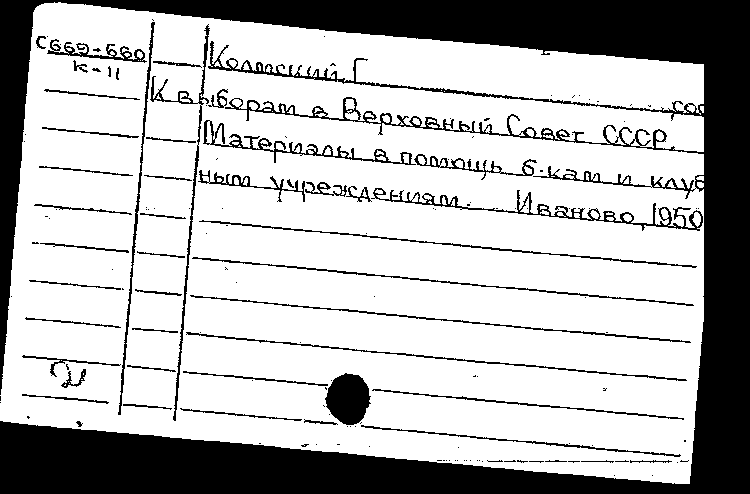 С669-560
К-11
Колтский, Г
сос
К выборам в Верховный Совет СССР.
Материалы в помощь б-кам и клуб
ным учреждениям. Иваново, 1950